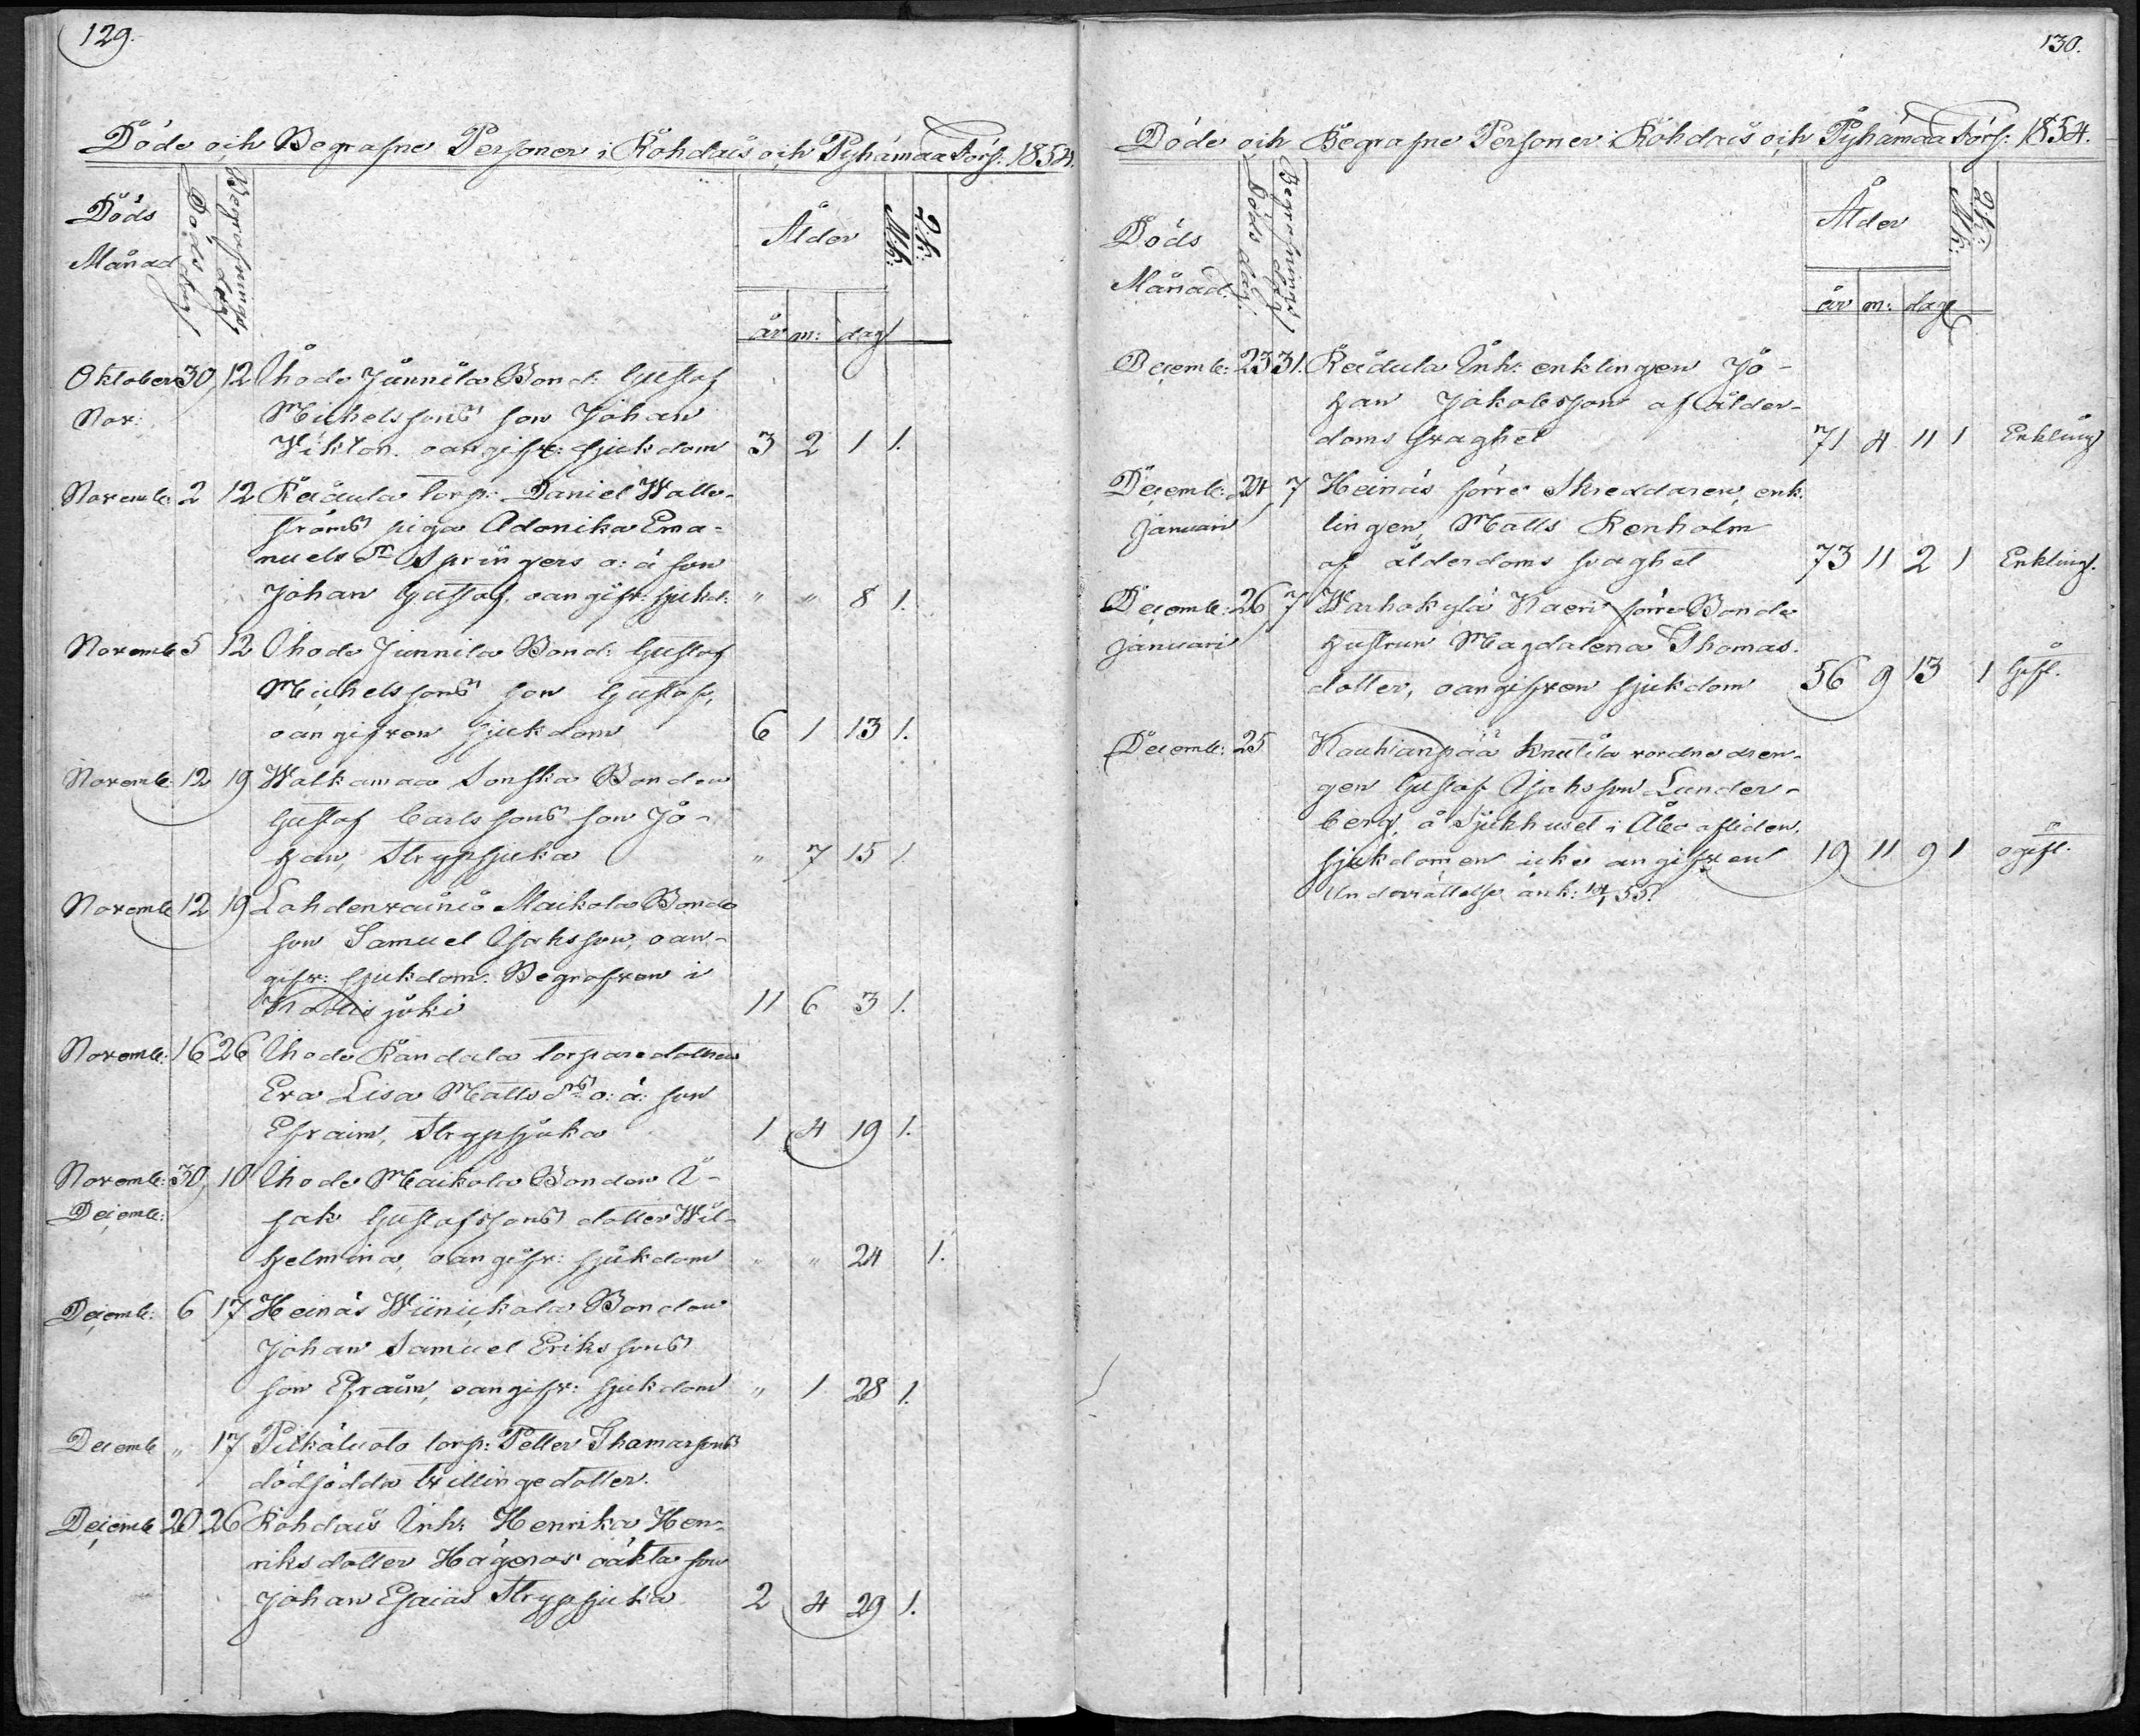 129.
Döde och Begrafne Personer i Rohdais och Pyhämaa Förs: 1854.
Döds
Månad
Döds dag
Begrafnings dag
Ålder
år m: dag
M.k:
Q.k:
Oktober 30, 12 Ihode Junnila Bond: Gustaf
Nov: Michelssons son Johan
Viktor. oangifv: sjukdom 3 2 1 1.
Novemb: 2 12 Räädula torp: Daniel Walls-
ströms piga Adonika Ema-
nuels dr Springers o: ä son
Johan Gustaf, oangifv: sjukd: " " 8 1.
Novemb 5 12 Ihode Junnila Bond: Gustaf
Michelssons son Gustaf,
oangifven sjukdom 6 1 13 1.
Novemb: 12 19 Walkamaa Sonska Bonden
Gustaf Carlssons son Jo-
han, Strypsjuka " 7 15 1.
Novemb 12 19 Lahdenvainio Maikola Bonde
son Samuel Isaksson, oan-
gifv: sjukdom. Begrafven i
joki 11 6 3 1.
Novemb: 16 26 Ihode Randala torparedottren
Eva Lisa Matts drs o: ä: son
Efraim, Strypsjuka 1 4 19 1.
Novemb: 30, 10 Ihode Maikola Bonden I-
Decemb: sak Gustafssons dotter Wil-
helmina, oangifv: sjukdom " " 24 1.
Decemb: 6 17 Heinäs Wiinickala Bonden
Johan Samuel Erikssons
son Efraim, oangifv: sjukdom " 1 28 1.
Decemb " 17 Pitkäluoto torp: Petter Thomassons
dödfödda tvillingedotter.
Decemb 20 26 Rohdais Inh: Henrika Hen-
riksdotter Hägeros oäkta son
Johan Esaias Strypsjuka 2 4 29 1.
130.
Döde och Begrafne Personer i Rohdais och Pyhämaa Förs: 1854.
Döds
Månad.
Döds dag:
Begrafnings dag
Ålder
år m: dag
M.k:
Q.k:
Decemb: 23 31. Räädula Inh: enklingen Jo-
han Jakobsson af ålder-
doms svaghet 71 4 11 1 Enkling
Decemb: 24, 7 Heinäs förre Skreddaren, enk-
Januari lingen, Matts Renholm
af ålderdoms svaghet 73 11 2 1 Enkling.
Decemb: 26, 7 Warhokylä Kaeri förre Bonde
Januari hustrun Magdalena Thomas-
dotter, oangifven sjukdom 56 9 13 1 Gift.
Decemb: 25 Kauhianpää Knutila vordne dren-
gen Gustaf Isaksson Lunder-
berg, å Sjukhuset i Åbo afliden,
sjukdomen icke angifven 19 11 9 1 ogift.
Underrättelse ank: 14/1 55.